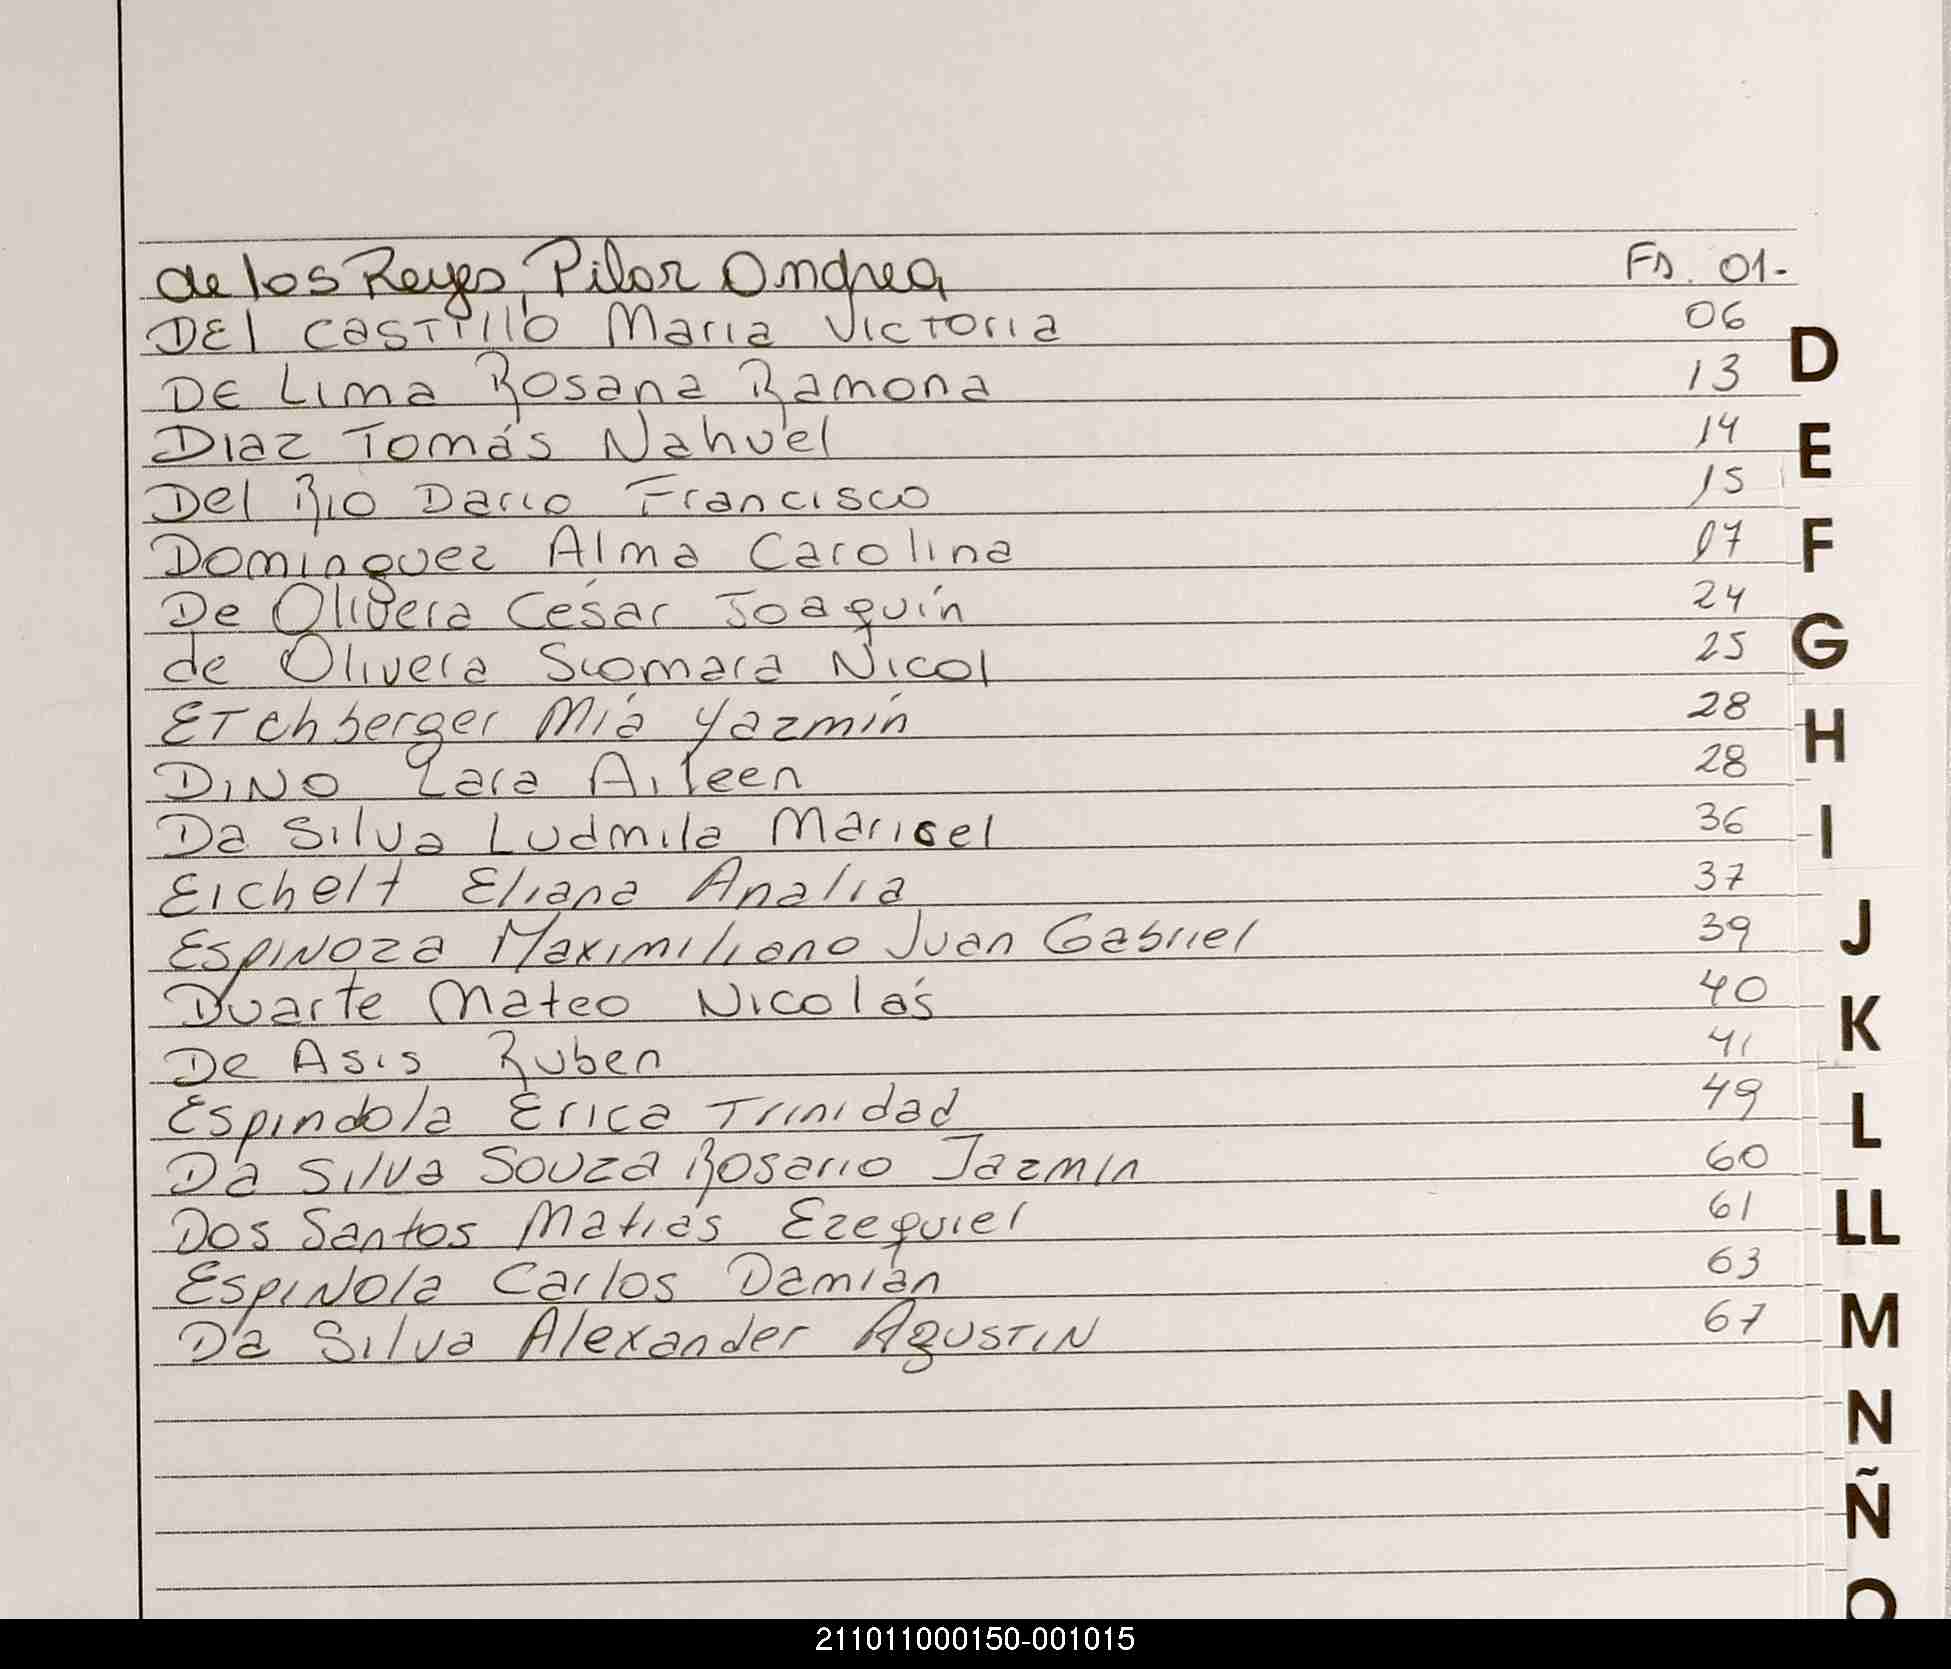 de los Reyes, Pilar Andrea Fs. 01-
DEl CASTillo Maria Victoria 06
DE Lima Rosana Ramona 13
Diaz Tomás Nahuel 14
Del Rio Dario Francisco 15
Dominguez Alma Carolina 17
De Olivera César Joaquín 24
de Olivera Sciomara Nicol 25
ETchberger Mía Yazmín 28
DiNO Lara Aileen 28
Da Silva Ludmila Marisel 36
Eichelt Eliana Analia 37
EspiNoza Maximiliano Juan Gabriel 39
Duarte Mateo Nicolás 40
De Asis Ruben 41
Espindola Erica Trinidad 49
Da Silva Souza Rosario Jazmin 60
Dos Santos Matias Ezequiel 61
EspiNola Carlos Damián 63
Da Silva Alexander AgusTiN 67
D
E
F
G
H
I
J
K
L
LL
M
N
Ñ
O
211011000150-001015